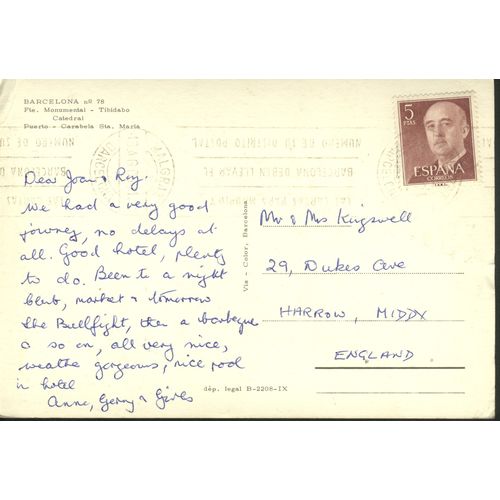 BARCELONA nº 78
Fte. Monumental - Tibidabo
Catedral
Puerto - Carabela Sta. Maria
5
PTAS
ESPAÑA
CORREOS
NUMERO DE SU DISTRITO POSTAL
BARCELONA DEBEN LLEVAR EL
Dear Joan & Roy.
We had a very good
journey, no delays at
all. Good hotel, plenty
to do. Been to a night
club, market & tomorrow
the Bullfight, then a barbeque
& so on, all very nice,
weathe gorgeous, nice pool
in hotel
Anne, Gerry &
Via - Color, Barcelona
dép. legal B-2208-IX
Mr & Mrs Kingswell
29, Dukes Ave
HARROW, MIDDX
ENGLAND